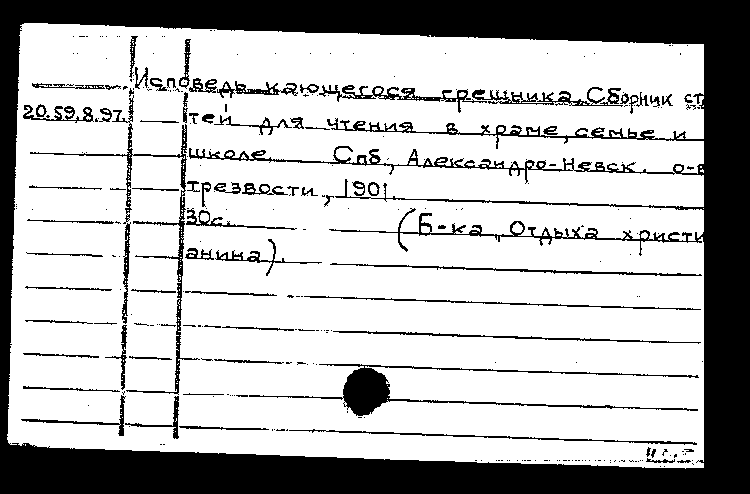 Исповедь кающегося грешника. Сборник ста
20.59.8.97. тей для чтения в храме, семье и
школе. Спб., Александро-Невск. о-в
трезвости, 1901.
30с. (Б-ка „Отдыха христи
анина).